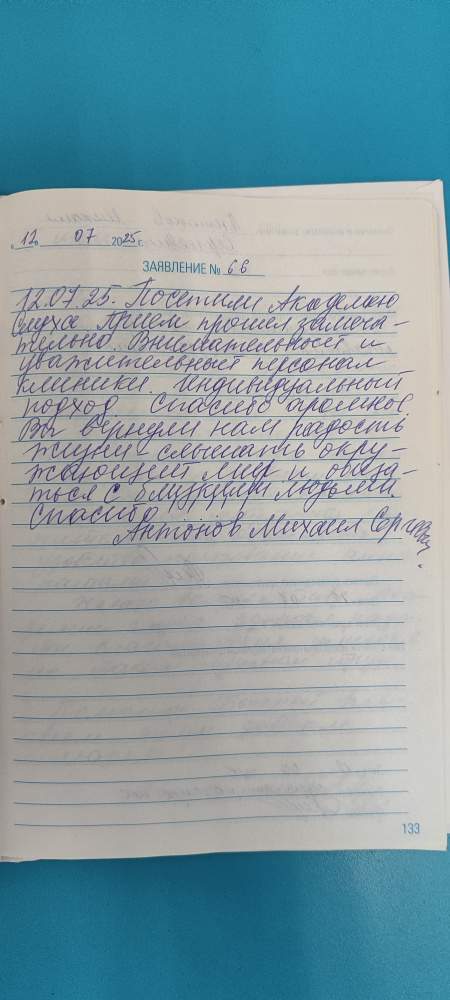 12 07 2025 г.
ЗАЯВЛЕНИЕ № 66
12.07.25. Посетили Академию
слуха. Прием прошел замеча-
тельно. Внимательный и
уважительный персонал
клиники. Индивидуальный
подход. Спасибо громное.
Вы вернули нам радость
жизни - слышать окру-
жающий мир и общa-
ться с близкими людьми.
Спасибо
Антонов Михаил Сергеевич.
133